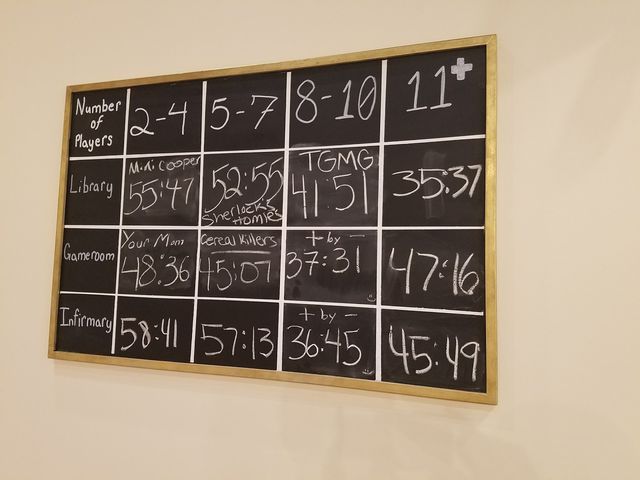 Number
of
Players
2-4
5-7
8-10
11+
Library
M.A. Cooper
55:47
52:55
Sherlock's
Homies
TGMG
41:51
35:37
Gameroom
Your Mom
48:36
Cereal Killers
45:07
+ by -
37:31
47:16
Infirmary
58:41
57:13
+ by -
36:45
45:49